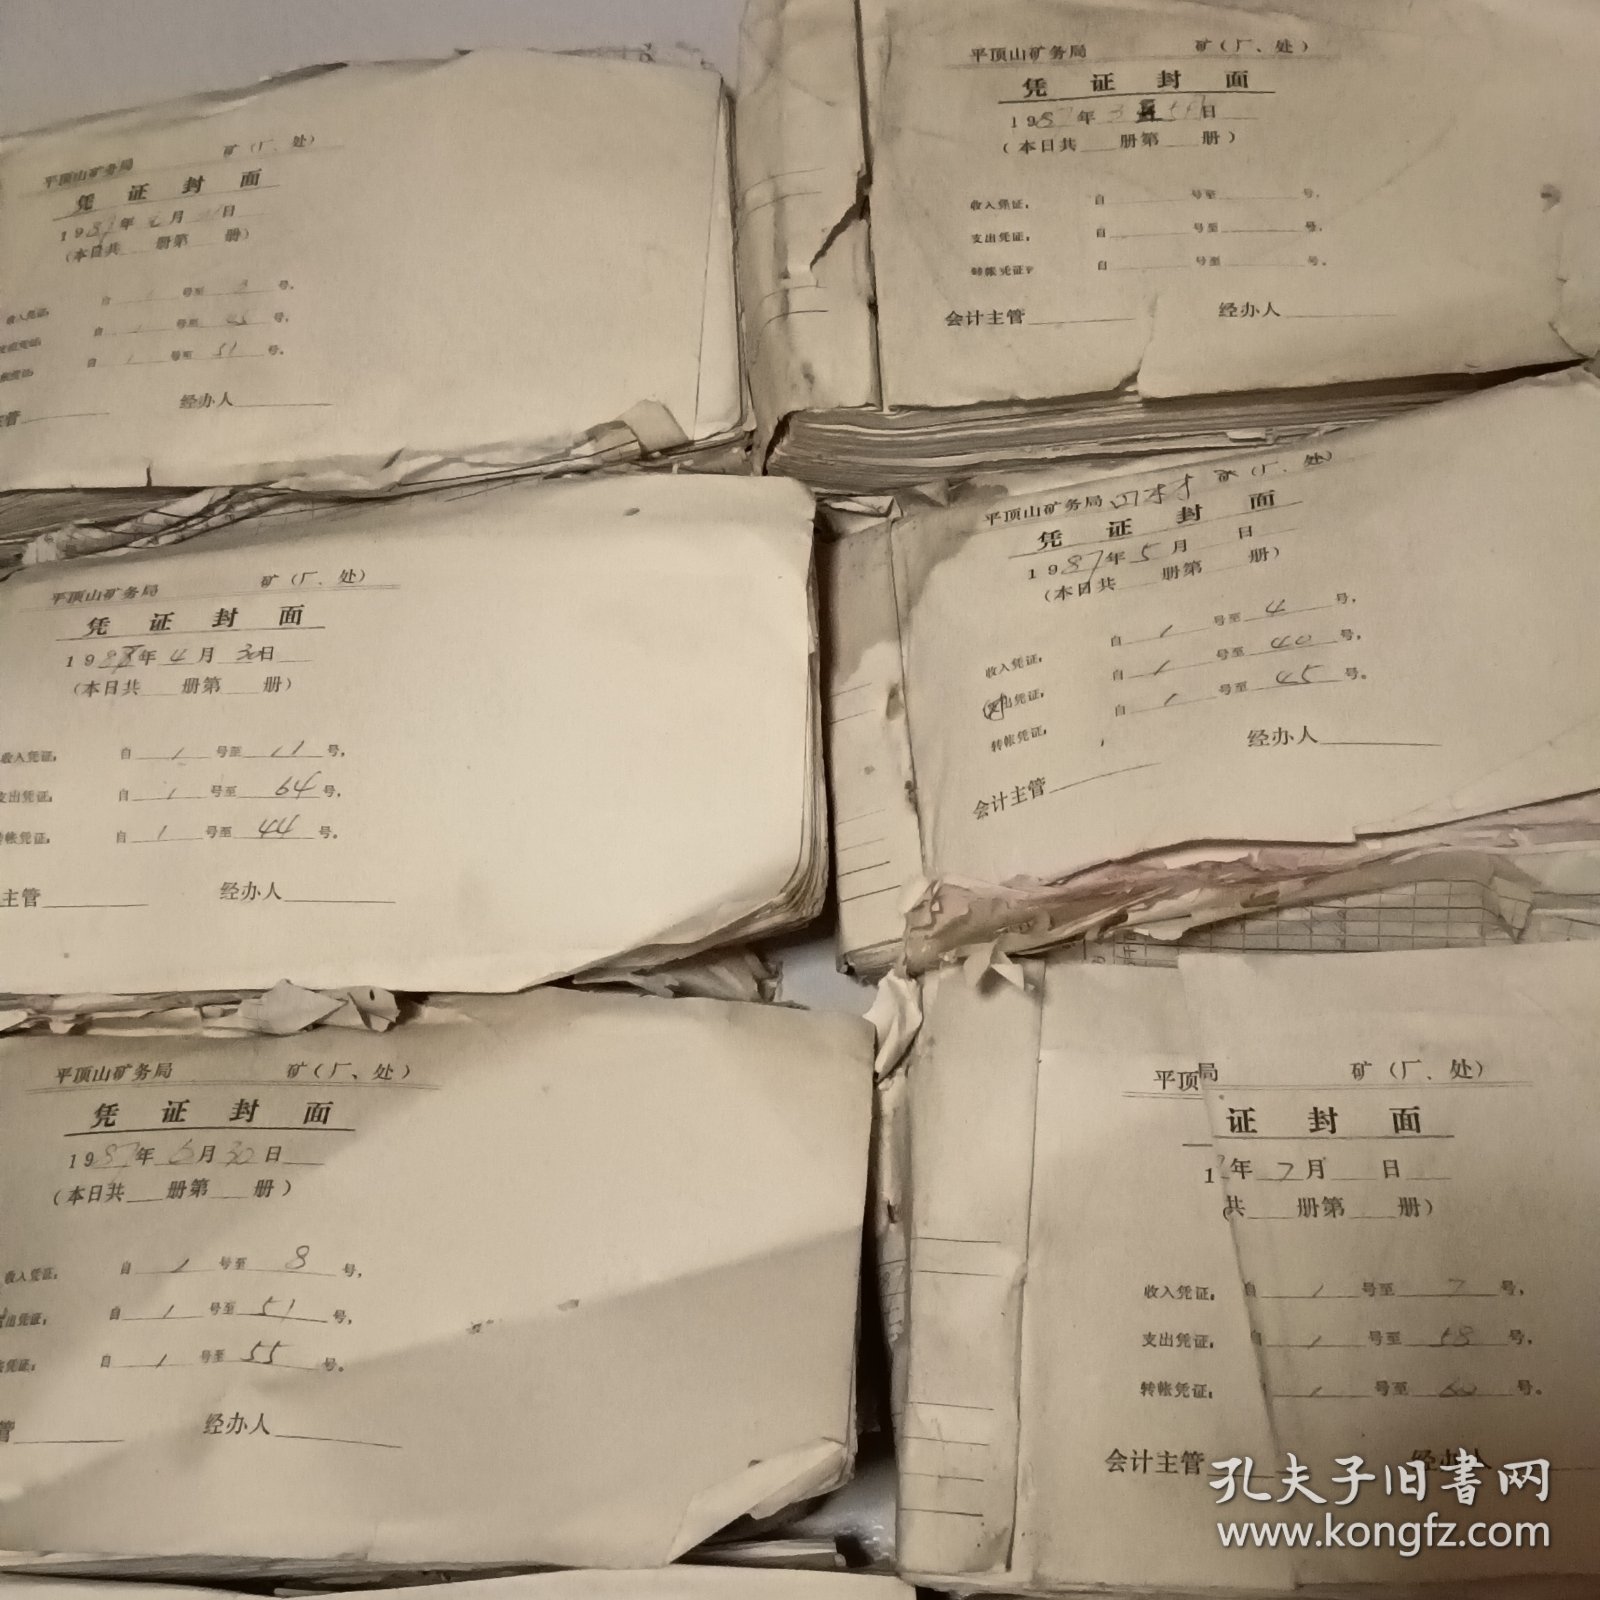 平顶山矿务局 矿(厂、处)
凭证封面
1987年2月 日
(本日共 册第 册)
收入凭证: 自 1 号至 3 号,
支出凭证: 自 1 号至 号,
转帐凭证: 自 1 号至 51 号。
主管 经办人
平顶山矿务局 矿(厂、处)
凭证封面
1987年3 日
(本日共 册第 册)
收入凭证: 自 号至 号,
支出凭证: 自 号至 号,
转帐凭证: 自 号至 号。
会计主管 经办人
平顶山矿务局 矿(厂、处)
凭证封面
198 年4月30日
(本日共 册第 册)
收入凭证: 自 1 号至 11 号,
支出凭证: 自 1 号至 64 号,
转帐凭证: 自 1 号至 44 号。
主管 经办人
平顶山矿务局 矿(厂、处)
凭证封面
1987年5月 日
(本日共 册第 册)
收入凭证: 自 1 号至 4 号,
支出凭证: 自 1 号至 40 号,
转帐凭证: 自 1 号至 45 号。
会计主管 经办人
平顶山矿务局 矿(厂、处)
凭证封面
1987年6月30日
(本日共 册第 册)
收入凭证: 自 1 号至 8 号,
出凭证: 自 1 号至 51 号,
凭证: 自 1 号至 55 号。
管 经办人
平顶局 矿(厂、处)
证封面
1 年7月 日
共 册第 册)
收入凭证: 自 1 号至 7 号,
支出凭证: 自 1 号至 58 号,
转帐凭证: 1 号至 60 号。
会计主管 经办人
孔夫子旧书网
www.kongfz.com